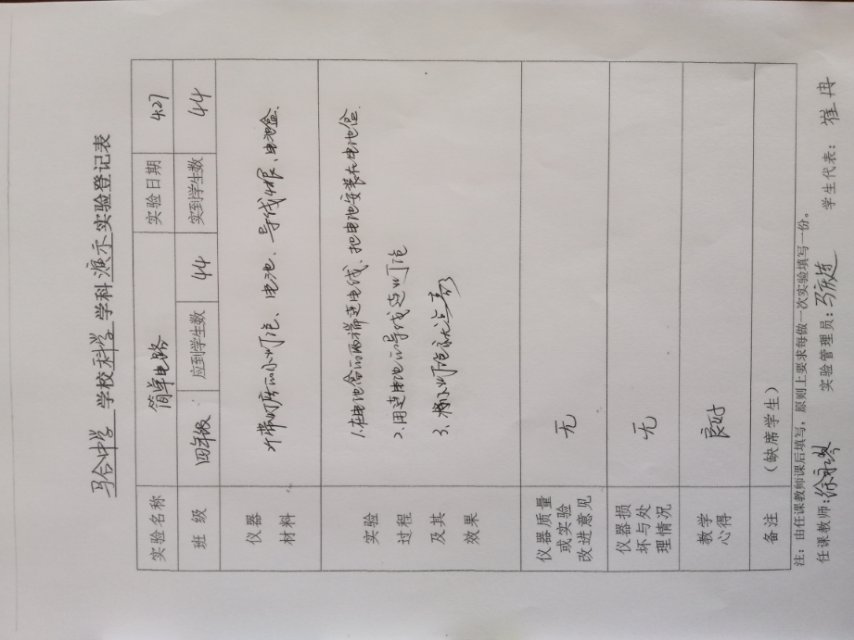 马会中学 学校科学学科演示实验登记表
实验名称 简单电路 实验日期 4.27
班 级 四年级 应到学生数 44 实到学生数 44
仪器
材料
小灯泡、电池、导线4根、电池盒.
实验
过程
及其
效果
1.在电池盒的两端连电线、把电池安装在电池盒.
2.用连电池的导线连小灯泡
3.将小灯泡点亮
仪器质量
或实验
改进意见
无
仪器损
坏与处
理情况
无
教学
心得
良好
备注 （缺席学生）
注：由任课教师课后填写，原则上要求每做一次实验填写一份。
任课教师：徐永琴 实验管理员：马庆莲 学生代表：崔冉